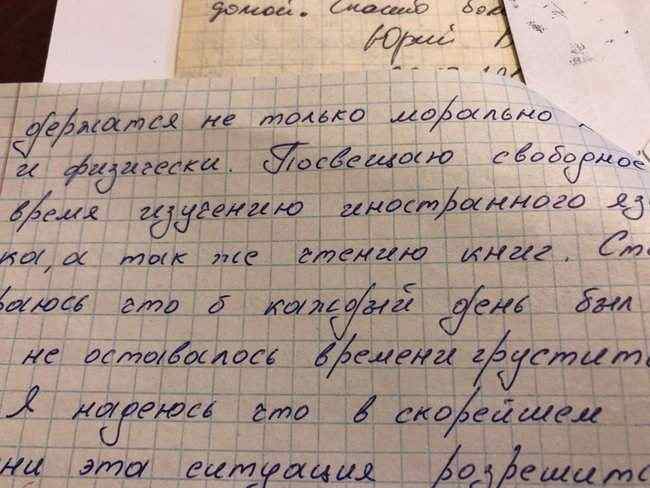 домой. Спасибо
Юрий
держатся не только морально
и физически. Посвещаю свободное
время изучению иностранного яз
ка, а так же чтению книг. Ста
раюсь что б каждый день был
не оставалось времени грустить
Я надеюсь что в скорейшем
ни эта ситуация розрешитс